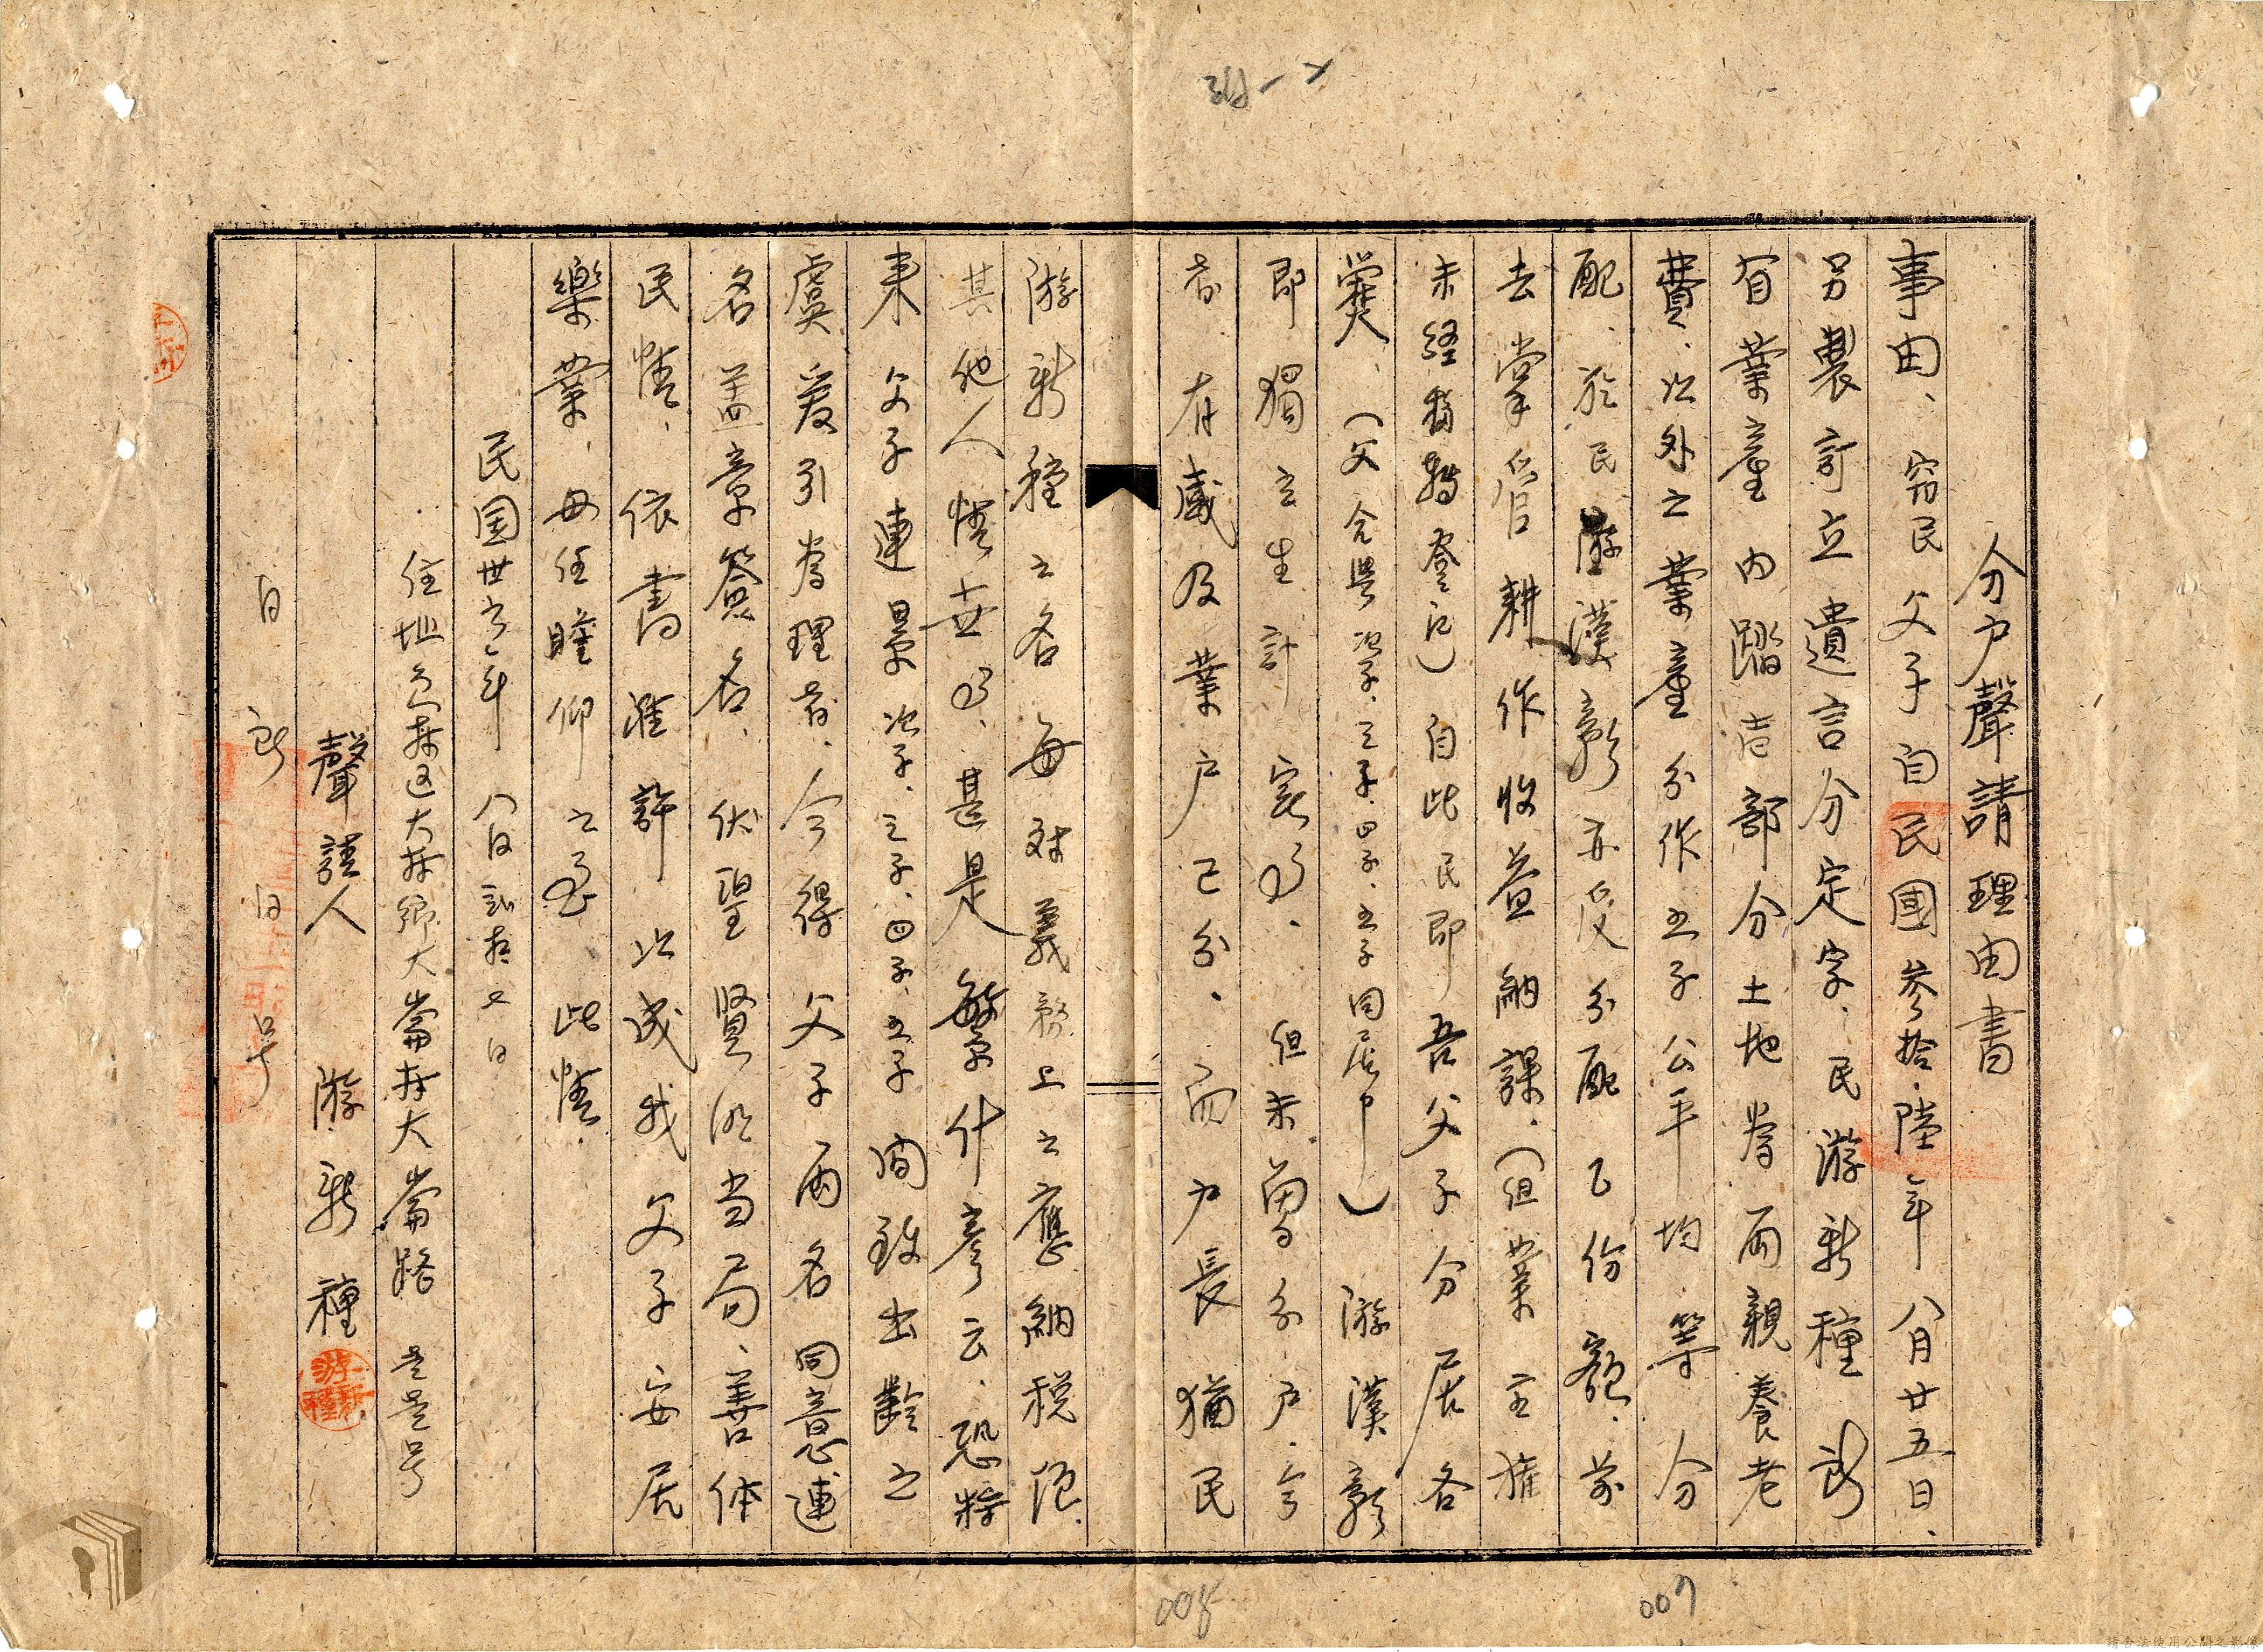 分户聲請理由書
事由、窃民父子自民國參拾陸年八月廿五日、
另製訂立遺言分定字、民游新種所
有業產內踏老部分土地為兩親養老
費、以外之業產分作五子公平均等分
配、於民游漢彰亦受分配乙份額、前
去掌管耕作收益納課、(但業主權
未經移轉登記)自此民即吾父子分居各
爨、(父今與次子、三子、四子、五子同居中)游漢彰
即獨立生計家的、但未曾分户、今
者、有感及業户已分、而户長猶民
游新種之名每對義務上之應納税項、
其他人情世的、甚是繁什彥云、恐將
來父子連累次子、三子、四子、五子間致出齡之
虞爰引為理者、今得父子兩名同意連
名蓋章簽名、伏望賢明当局、善体
民情、依書准許以成我父子安居
樂業、毋任瞻仰之至、此情、
民国卅六年八月 日
住址 大林鄉大崙村大崙路 号
聲請人 游新種
游新種
007
008